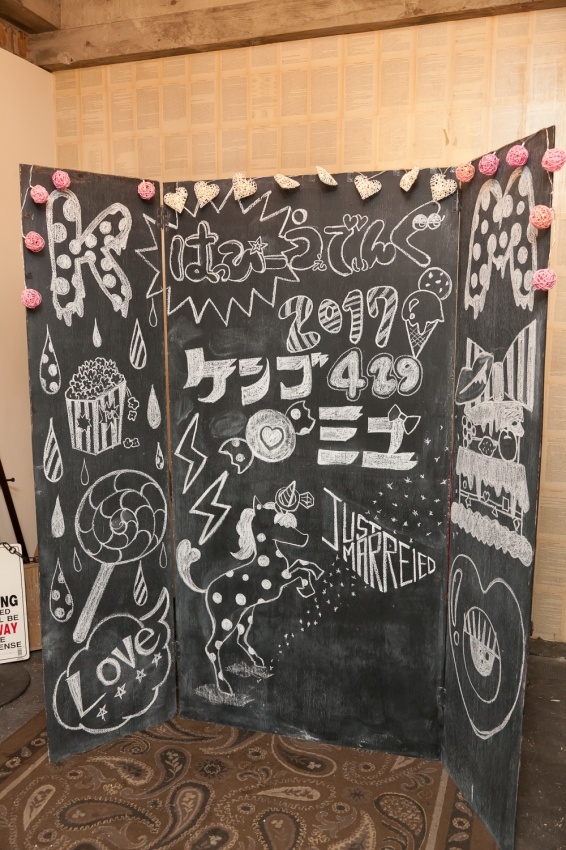 K
はっぴーうぇでぃんぐ
M
2017
ケンゴ 429
ミユ
JUST
MARREIED
Love
NG
ED
L BE
WAY
E
ENSE